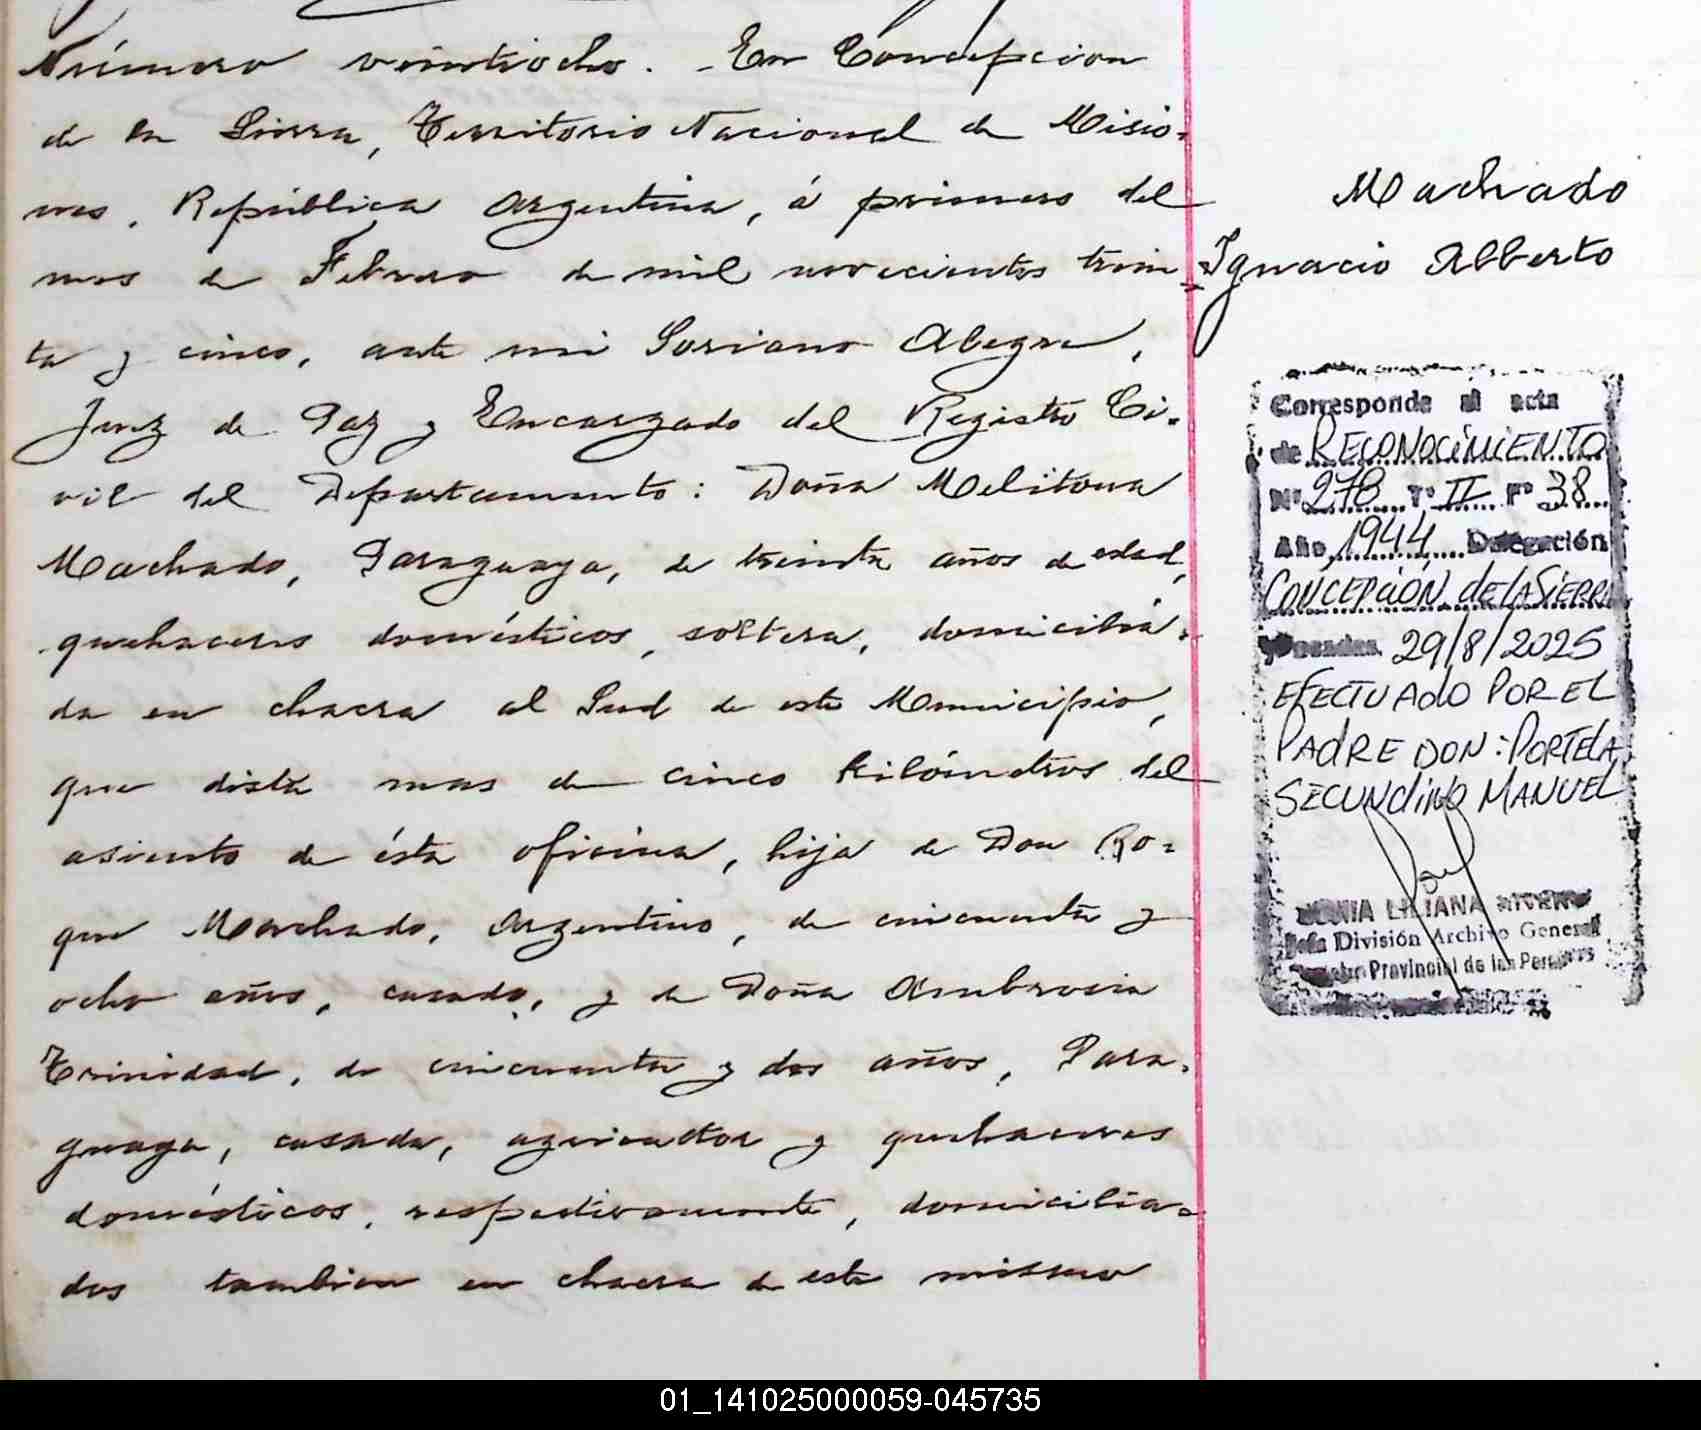 Número veintiocho. En Concepcion
de la Sierra, Territorio Nacional de Misio-
nes, República Argentina, á primero del
mes de Febrero de mil novecientos trein=
ta y cinco, ante mi Soriano Alegre,
Juez de Paz y Encargado del Registro Ci-
vil del Departamento: Doña Melitona
Machado, Paraguaya, de treinta años de edad,
quehaceres domésticos, soltera, domicilia-
da en chacra al Sud de este Municipio,
que dista mas de cinco kilómetros del
asiento de ésta oficina, hija de Don Ro=
que Machado, Argentino, de cincuenta y
ocho años, casado, y de Doña Ambrosia
Trinidad, de cincuenta y dos años, Para-
guaya, casada, agricultor y quehaceres
domésticos, respectivamente, domicilia-
dos tambien en chacra de este mismo
Machado
Ignacio Alberto
Corresponde al acta
de RECONOCIMIENTO
Nº 278 Tº II Fº 38
Año 1944 Delegación
CONCEPCIÓN de LA SIERRA
Posadas 29/8/2025
EFECTUADO POR EL
PADRE DON: PORTELA
SECUNDINO MANUEL
LILIANA
Jefa División Archivo General
Provincial de las Personas
01_141025000059-045735